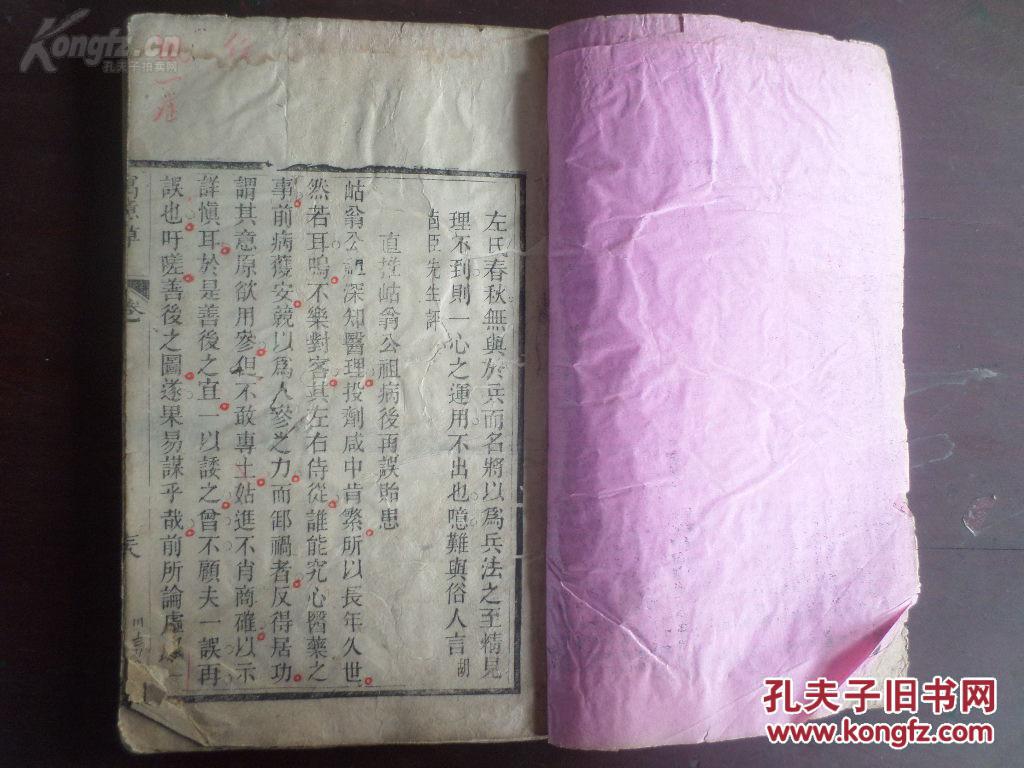 左氏春秋無與於兵而名將以爲兵法之至精見
理不到則一心之運用不出也噫難與俗人言胡
卣臣先生評
直推岵翁公祖病後再誤貽患
岵翁公祖深知醫理投劑咸中肯綮所以長年久世
然若耳鳴不樂對客其左右侍從誰能究心醫藥之
事前病獲安競以爲人參之力而卸禍者反得居功
謂其意原欲用參但不敢專主姑進不肖商確以示
詳慎耳於是善後之宜一以諉之曾不顧夫一誤再
誤也吁嗟善後之圖遂果易謀乎哉前所論虛
寓意草
卷一
Kongfz.cn
孔夫子拍卖网
孔夫子旧书网
www.kongfz.com